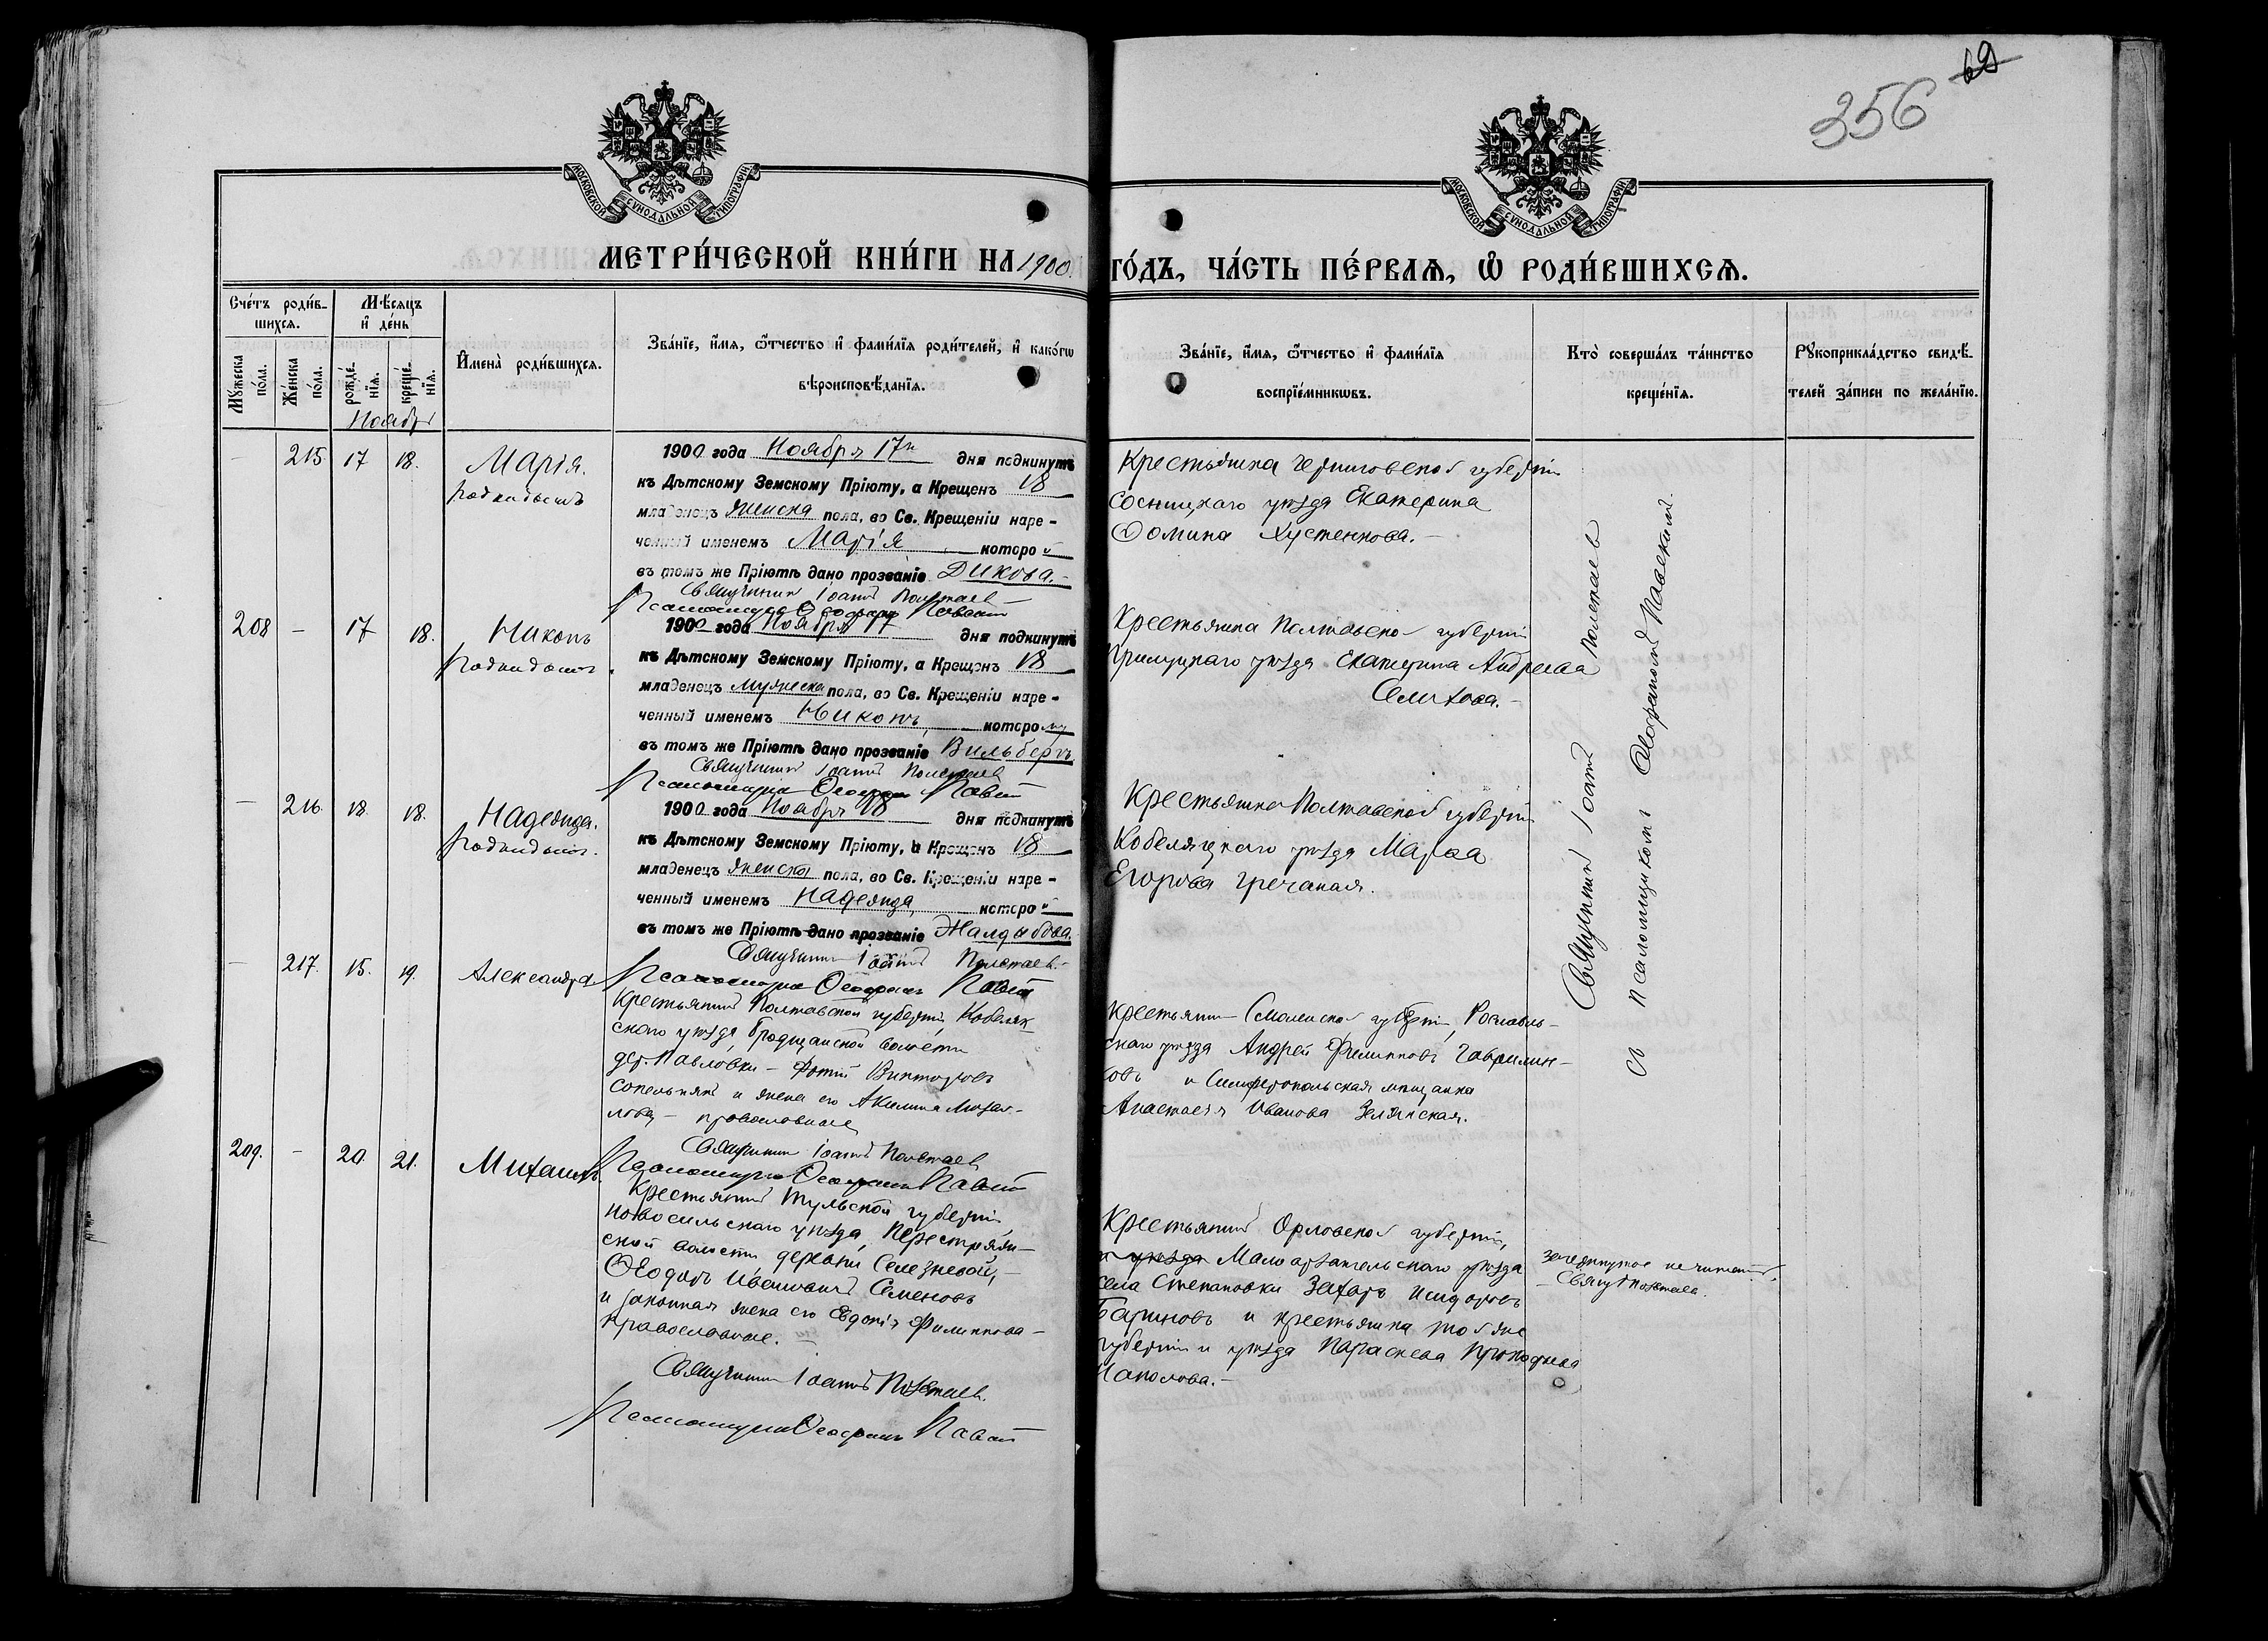 356
69
МОСКОВСКОЙ СУНОДАЛЬНОЙ ТИПОГРАФІИ
МОСКОВСКОЙ СУНОДАЛЬНОЙ ТИПОГРАФІИ
МЕТРИ́ЧЕСКОЙ КНИ́ГИ НА 1900
ГО́ДЪ, ЧА́СТЬ ПЕ́РВАѦ, Ѽ РОДИ́ВШИХСѦ.
Сче́тъ роди́в-
шихсѧ.
Мѣ́сѧцъ
и҆ де́нь
Мꙋ́жеска
по́ла.
Же́нска
по́ла.
рожде́-
нїѧ.
креще́-
нїѧ.
И҆мена̀ роди́вшихсѧ.
Зва́нїе, и҆́мѧ, ѻ҆́тчество и҆ фами́лїѧ роди́телей, и҆ како́гѡ
вѣроисповѣ́данїѧ.
Зва́нїе, и҆́мѧ, ѻ҆́тчество и҆ фами́лїѧ
воспрїе́мникѡвъ.
Кто̀ соверша́лъ та́инство
креще́нїѧ.
Рꙋкоприкла́дство свидѣ́-
телей за́писи по жела́нїю.
Ноябрь
– 215 17 18.
Марія.
подкидышъ
1900 года Ноября 17го дня подкинутъ
къ Дѣтскому Земскому Пріюту, а Крещенъ 18
младенецъ женска пола, во Св. Крещеніи наре-
ченный именемъ Марія которой
въ томъ же Пріютѣ дано прозваніе Дикова.
Священникъ Іоаннъ Полетаевъ
Крестьянка Черниговской губерніи
Сосницкаго уѣзда Екатерина
Фомина Хустенкова.
208 – 17 18.
Никонъ
подкидышъ.
1900 года Ноября 17 дня подкинутъ
къ Дѣтскому Земскому Пріюту, а Крещенъ 18
младенецъ мужеска пола, во Св. Крещеніи наре-
ченный именемъ Никонъ, которому
въ томъ же Пріютѣ дано прозваніе Вильбергъ
Священникъ Іоаннъ Полетаевъ
Крестьянка Полтавской губерніи
Прилуцкаго уѣзда Екатерина Андреева
Селихова.
– 216. 18. 18.
Надежда.
подкидышъ.
1900 года Ноября 18 дня подкинутъ
къ Дѣтскому Земскому Пріюту, а Крещенъ 18
младенецъ женска пола, во Св. Крещеніи наре-
ченный именемъ Надежда, которой
въ томъ же Пріютѣ дано прозваніе Жалдыбова.
Священникъ Іоаннъ Полетаевъ
Крестьянка Полтавской губерніи
Кобеляцкаго уѣзда Марѳа
Егорова Гречаная.
– 217. 15. 19.
Александра
Крестьянинъ Полтавской губерніи, Кобеляк-
скаго уѣзда, волости
дер. Павловки – Фотій Викторовъ
и жена его Акилина
православные
Священникъ Іоаннъ Полетаевъ
Крестьянинъ Смоленской губерніи, Рославль-
скаго уѣзда Андрей Филипповъ Гаврилин-
ковъ и Симферопольская мѣщанка
Анастасія Иванова Зелинская.
209. – 20 21.
Михаилъ.
Крестьянинъ Тульской губерніи
Новосильскаго уѣзда,
ской волости, деревни Селезневой,
Ѳеодоръ Ивановичъ Семеновъ
и законная жена его Евдокія Филиппова –
православные.
Священникъ Іоаннъ Полетаевъ.
Крестьянинъ Орловской губерніи,
и уѣзда Малоархангельскаго уѣзда
села Степановки Захаръ Исидоровъ
Бариновъ и крестьянка той же
губерніи и уѣзда Параскева Прокофьева
Священникъ Іоаннъ Полетаевъ
съ псаломщикомъ Аѳанасіемъ Павскимъ.
зачеркнутое не читать.
Священ. Полетаевъ.